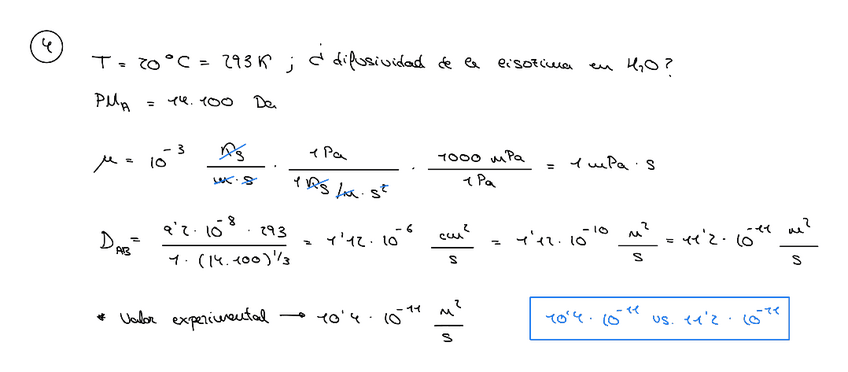 4
T = 20°C = 293K ; ¿ difusividad de la lisozima en H₂O?
PM_A = 14.100 Da
μ = 10⁻³ Kg/(m·s) · 1 Pa/(1 Kg/m·s²) · 1000 mPa/1 Pa = 1 mPa·s
D_AB = (9'2·10⁻⁸·293)/(1·(14.100)^1/3) = 1'12·10⁻⁶ cm²/s = 1'12·10⁻¹⁰ m²/s = 11'2·10⁻¹¹ m²/s
* Valor experimental → 10'4·10⁻¹¹ m²/s
10'4·10⁻¹¹ vs. 11'2·10⁻¹¹